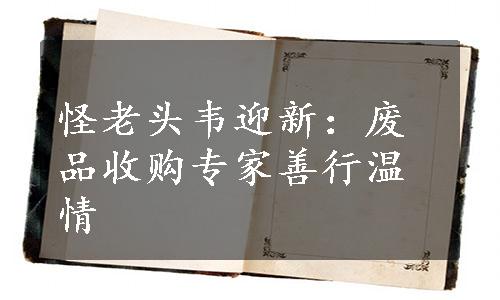 怪老头韦迎新：废
品收购专家善行温
情